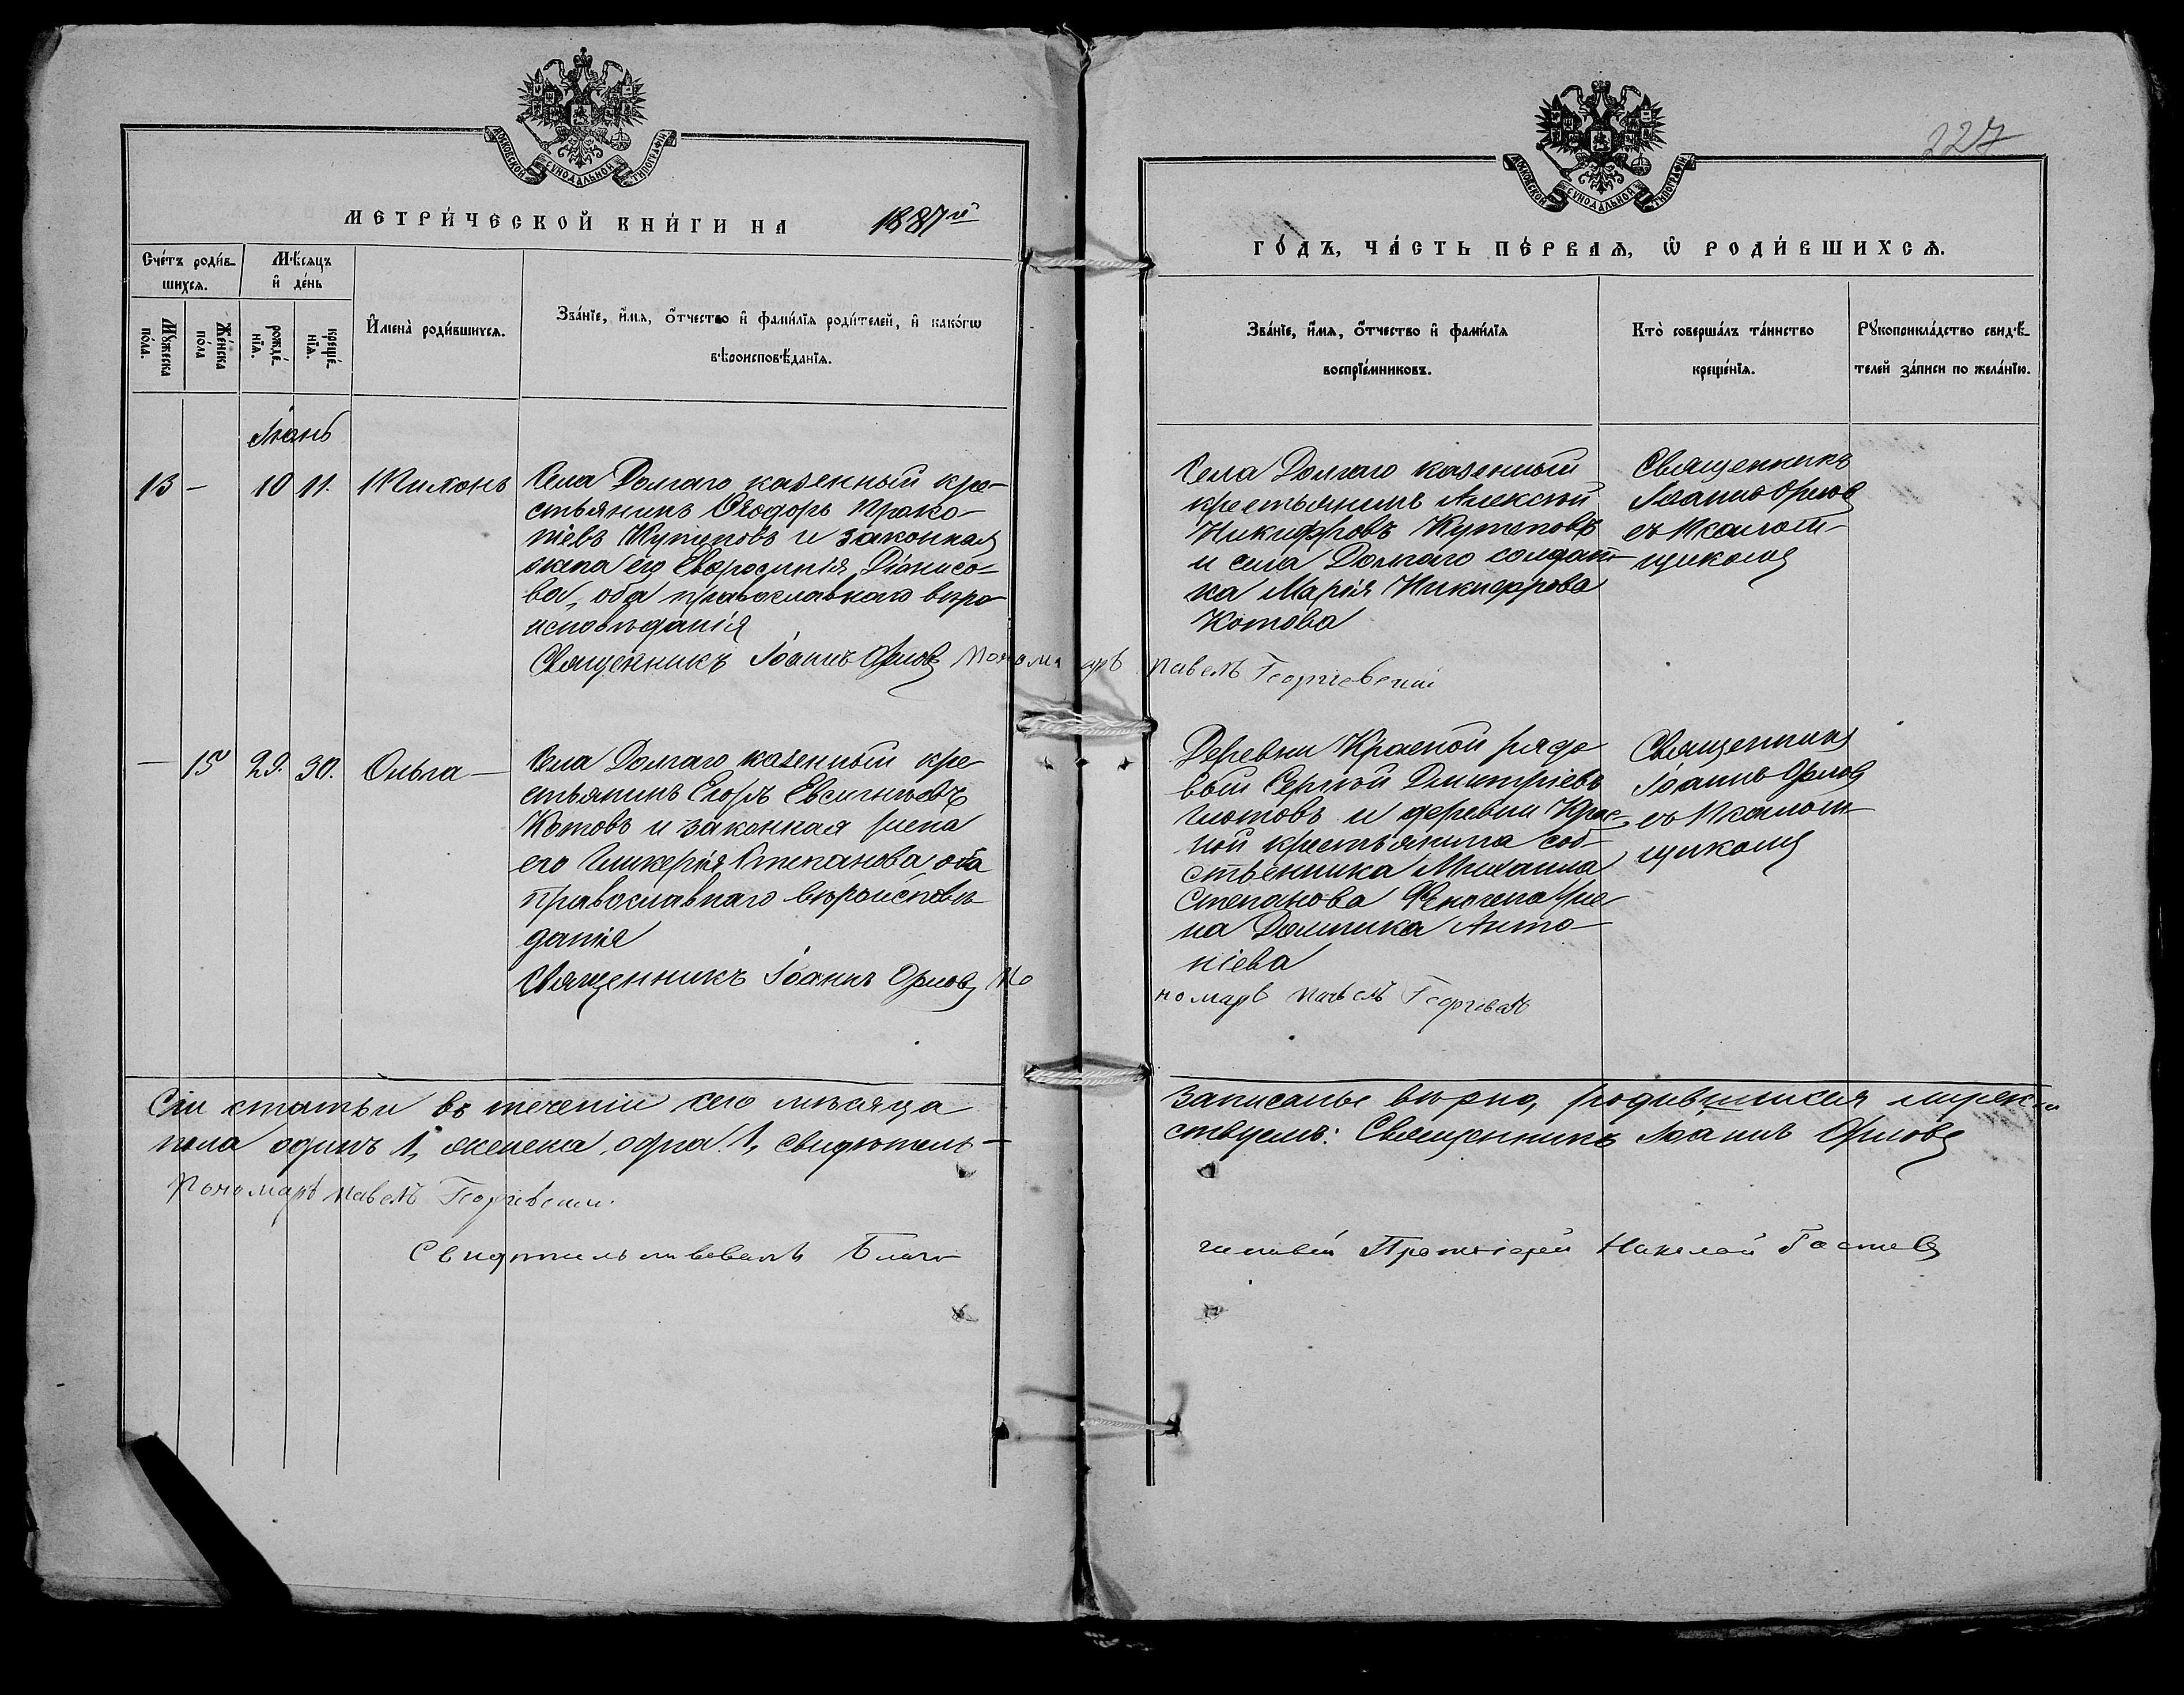 МОСКОВСКОЙ СУНОДАЛЬНОЙ ТИПОГРАФІИ
МЕТРИ́ЧЕСКОЙ КНИ́ГИ НА 1887й
Сче́тъ роди́в-
шихсѧ.
Мѣ́сѧцъ
и҆ де́нь
Мꙋ́жеска
по́ла.
Же́нска
по́ла
рожде́-
нїѧ.
креще́-
нїѧ.
И҆мена̀ роди́вшихсѧ.
Зва́нїе, и҆́мѧ, ѻ҆́тчество и҆ фами́лїѧ роди́телей, и҆ како́гѡ
вѣроисповѣ́данїѧ.
Іюнь
13 — 10 11. Тихонъ
Села Долгаго казенный кре-
стьянинъ Ѳеодоръ Проко-
піевъ Кутеповъ и законная
жена его Евфросинія Діонисо-
ва, оба православнаго вѣро
исповѣданія
Священникъ Іоаннъ Орловъ Пономарь Павелъ Георгіевскій
— 15 29. 30. Ольга —
Села Долгаго казенный кре-
стьянинъ Егоръ Евсигнѣевъ
Котовъ и законная жена
его Гликерія Степанова, оба
православнаго вѣроисповѣ-
данія
Священникъ Іоаннъ Орловъ По
Сіи статьи въ теченіи сего мѣсяца
пола одинъ 1, женска одна 1, свидѣтель-
Пономарь Павелъ Георгіевскій.
Свидѣтельствовалъ Благо
227
МОСКОВСКОЙ СУНОДАЛЬНОЙ ТИПОГРАФІИ
ГО́ДЪ, ЧА́СТЬ ПЕ́РВАѦ, Ѡ҆ РОДИ́ВШИХСѦ.
Зва́нїе, и҆́мѧ, ѻ҆́тчество и҆ фами́лїѧ
воспрїе́мниковъ.
Кто̀ соверша́лъ та́инство
креще́нїѧ.
Рꙋкоприкла́дство свидѣ́-
телей за́писи по жела́нїю.
Села Долгаго казенный
крестьянинъ Алексѣй
Никифоровъ Кутеповъ
и села Долгаго солдат-
ка Марія Никифорова
Котова
Священникъ
Іоаннъ Орловъ
съ Псалом-
щикомъ
Деревни Красной рядо
вый Сергѣй Дмитріевъ
Глотовъ и деревни Крас-
ной крестьянина соб-
ственника Михаила
Степанова же-
на Домника Анто-
ніева
Священникъ
Іоаннъ Орловъ
съ Псалом-
щикомъ
номарь Павелъ Георгіевскій
записаны вѣрно, родившихся мужеска
ствуемъ: Священникъ Іоаннъ Орловъ
чинный Протоіерей Николай